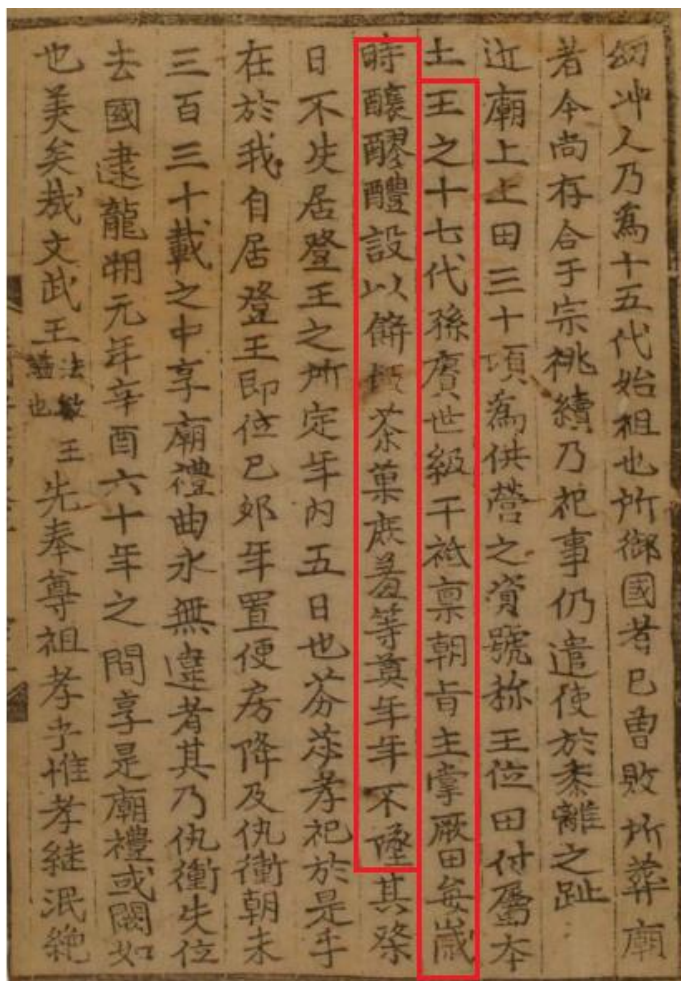 幼冲人乃爲十五代始祖也所御國者已曽敗所葬廟
者今尚存合于宗祧續乃祀事仍遣使於黍離之趾
近廟上上田三十頃爲供營之資號称王位田付属本
土王之十七代孫賡世級干祗禀朝旨主掌厥田每歳
時釀醪醴設以餠飯茶菓庶羞等奠年年不墜其祭
日不失居登王之所定年内五日也芬苾孝祀於是乎
在於我自居登王即位己卯年置便房降及仇衝朝未
三百三十載之中享廟禮曲永無違者其乃仇衝失位
去國逮龍朔元年辛酉六十年之間享是廟禮或闕如
也美矣㢤文武王法敏謚也王先奉尊祖孝乎惟孝継泯絶